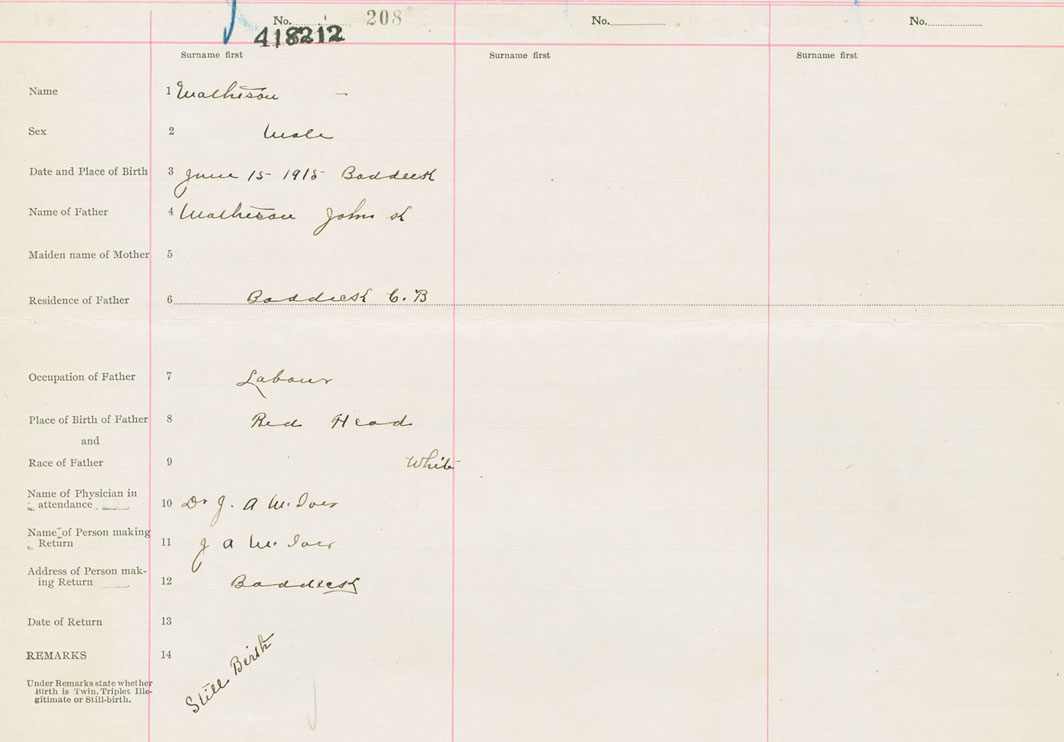 No. 208 No. No.
418212
Surname first Surname first Surname first
Name 1 Matheson –
Sex 2 Male
Date and Place of Birth 3 June 15 - 1915 Baddeck
Name of Father 4 Matheson John K
Maiden name of Mother 5
Residence of Father 6 Baddeck C. B
Occupation of Father 7 Labour
Place of Birth of Father 8 Red Head
and
Race of Father 9 White
Name of Physician in
attendance 10 Dr J. A Mc.Iver
Name of Person making
Return 11 J A Mc. Iver
Address of Person mak-
ing Return 12 Baddeck
Date of Return 13
REMARKS 14
Still Birth
Under Remarks state whether
Birth is Twin, Triplet Ille-
gitimate or Still-birth.